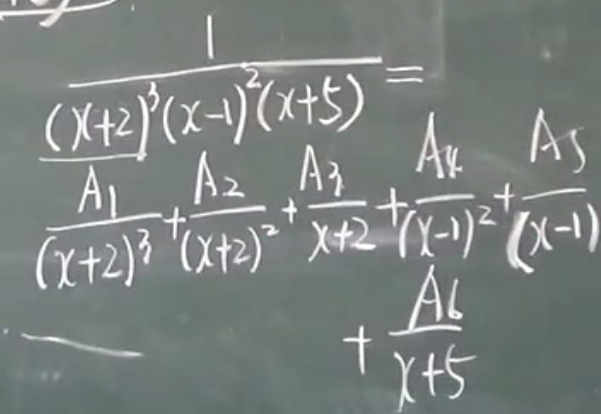 1/((x+2)^3(x-1)^2(x+5)) =
A1/(x+2)^3 + A2/(x+2)^2 + A3/x+2 + A4/(x-1)^2 + A5/(x-1)
+ A6/x+5